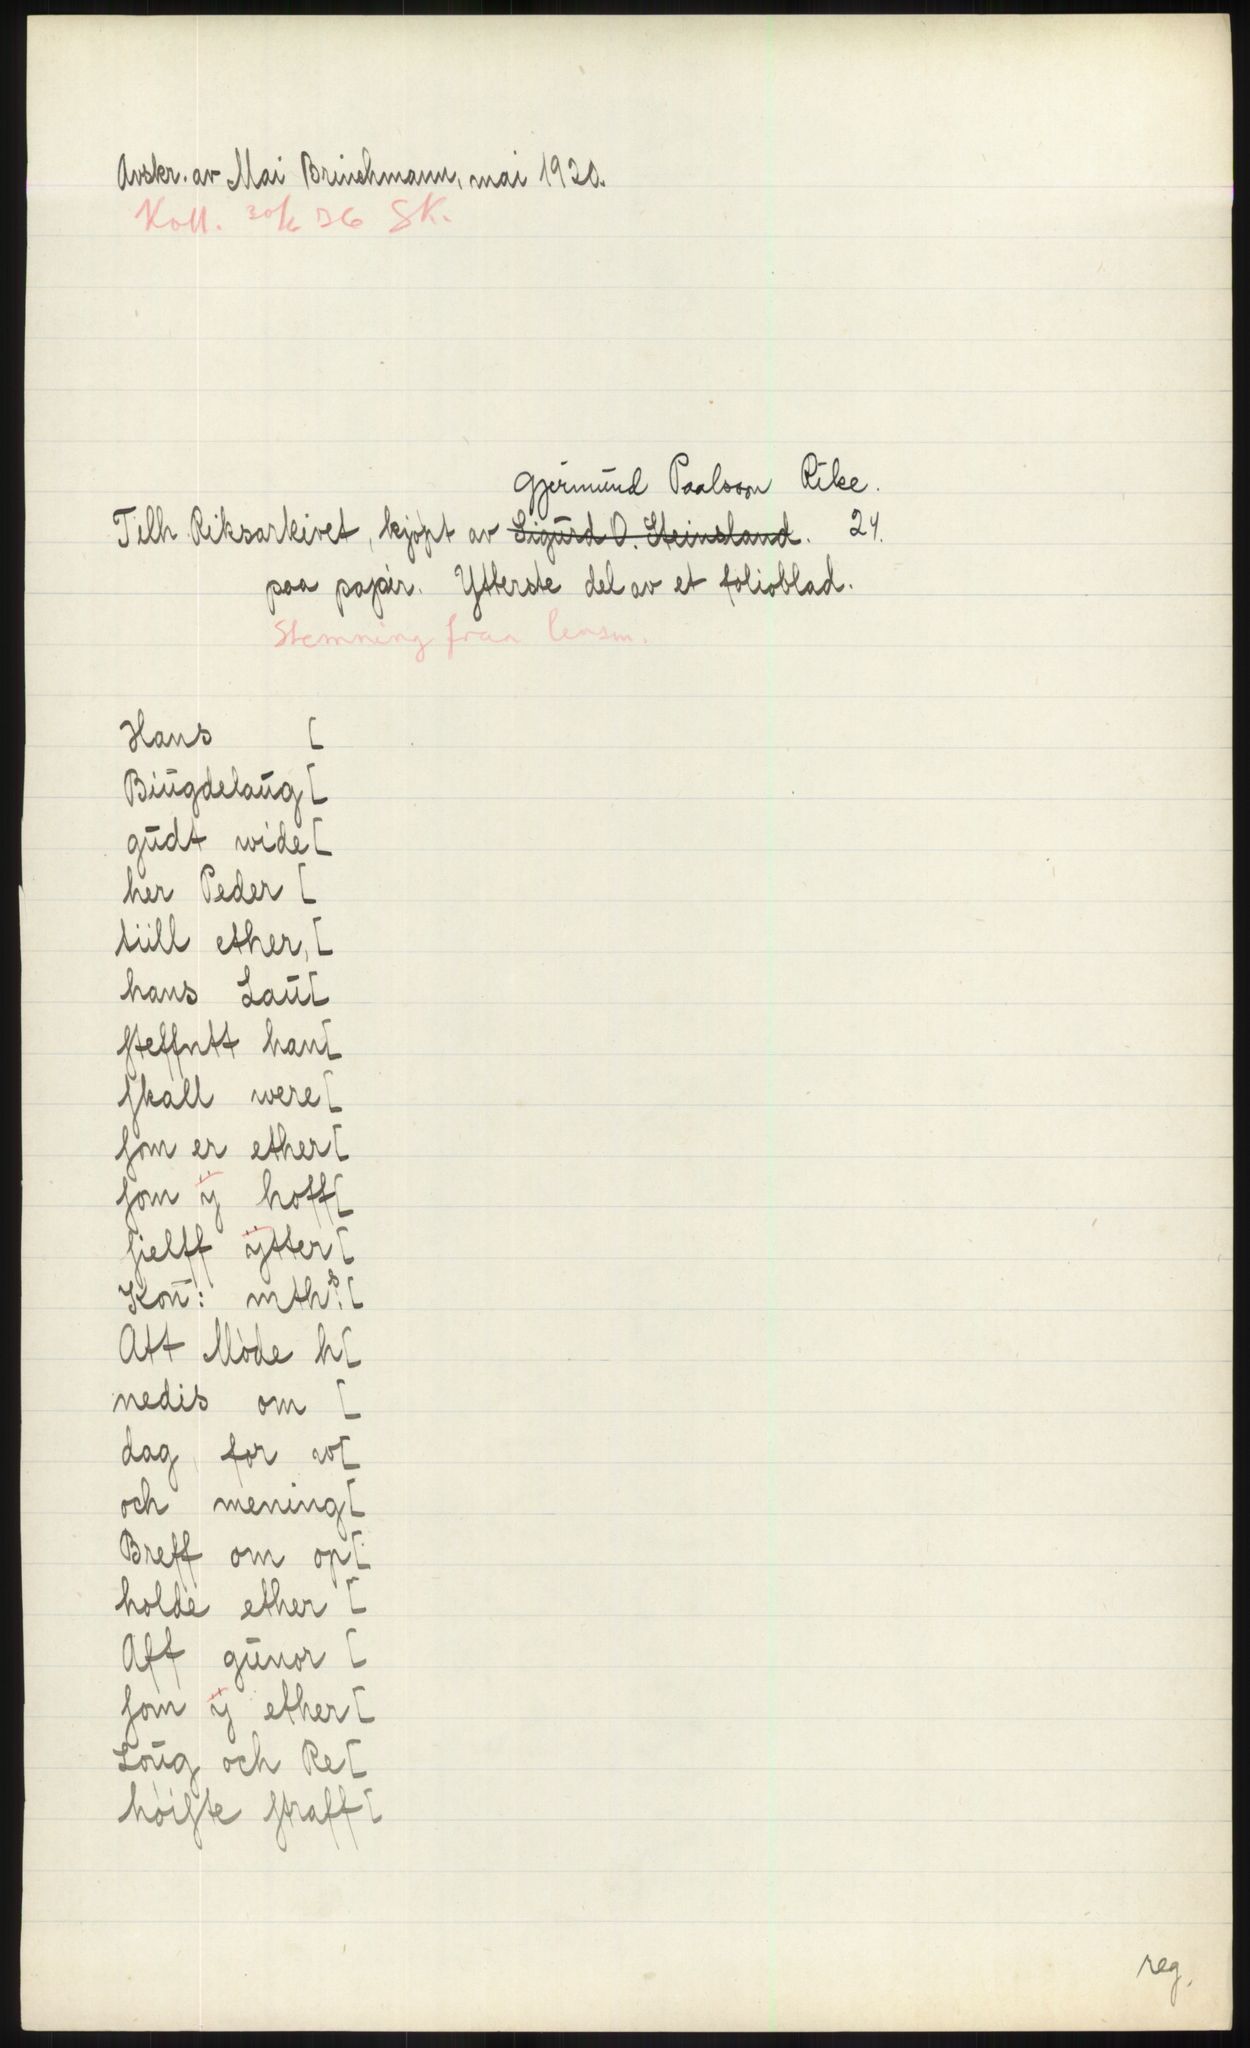 Avskr. av Mai Brinchmann, mai 1920.
Koll. 30/6 36 SK.
Gjermūnd Paalsson Rike.
Tilh. Riksarkivet, kjøpt av Sigūrd O. Steinsland. 24.
paa papir. Ytterste del av et folioblad.
Stemning fraa lensm.
Hans [
Biūgdelaūg [
gūdt wide [
her Peder [
tiill ether, [
hans Laū [
ſteffntt han [
ſkall were [
ſom er ether [
ſom ÿ hoff [
ſielff ÿtter [
Kon̄: mths. [
Att Møde h [
nedis om [
dag, for w [
och mening [
Breff om op [
holde ether [
Aff gūnor [
ſom ÿ ether [
Loūg och Re [
høiſte ſtraff [
reg.